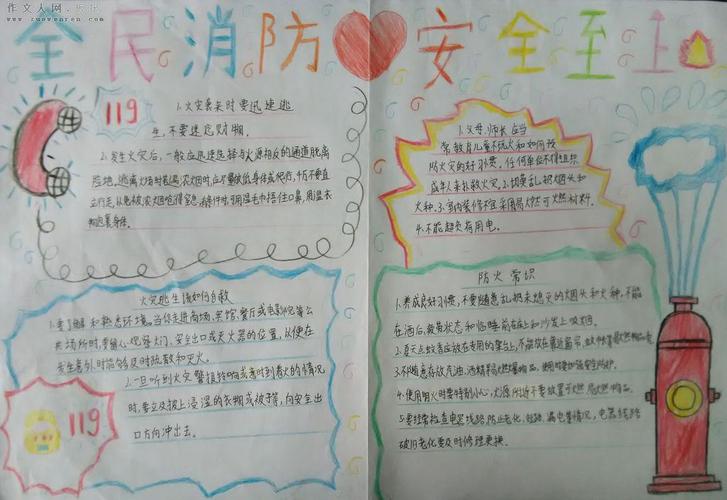 作文人网
www.zuowenren.com
全民消防 安全至上
119
1.火灾袭来时要迅速逃
生,不要迷恋财物。
2.发生火灾后,一般应迅速选择与火源相反的通道脱离
险地。逃离火场时若遇浓烟时,应尽量放低身体或爬行,千万不要直
立行走,以免被浓烟呛得窒息。条件时用湿毛巾捂住口鼻,用湿衣
物包裹身体。
1.父母、师长应当
常教育儿童不玩火和如何预
防火灾的好习惯,任何单位不得组织
成年人来扑救火灾。2.切莫乱扔烟头和
火种。3.室内装修不宜采用易燃可燃材料。
4.不能超负荷用电。
火灾逃生该如何自救
1.要了解和熟悉环境。当你走进商场、宾馆、餐厅或电影院等公
共场所时,要留心观察太平门、安全出口或灭火器的位置,以便在
发生意外时能够及时疏散和灭火。
2.一旦听到火灾警报拉响或看到着火的情况
时,要立及披上浸湿的衣物或被子等,向安全出
口方向冲出去。
119
防火常识
1.养成良好习惯,不要随意乱扔未熄灭的烟头和火种,不能
在酒后、疲劳状态和临睡前在床上和沙发上吸烟。
2.夏天点蚊香应放在专用的架台上,不能放在靠近窗帘、蚊帐等易燃物品处。
3.不随意存放汽油、酒精等易燃易爆物品,使用时要加强安全防护。
4.使用明火时要特别小心,火源附近不要放置可燃、易燃物品。
5.要经常检查电器线路,防止老化、短路、漏电等情况,电器线路
破旧老化要及时修理更换。